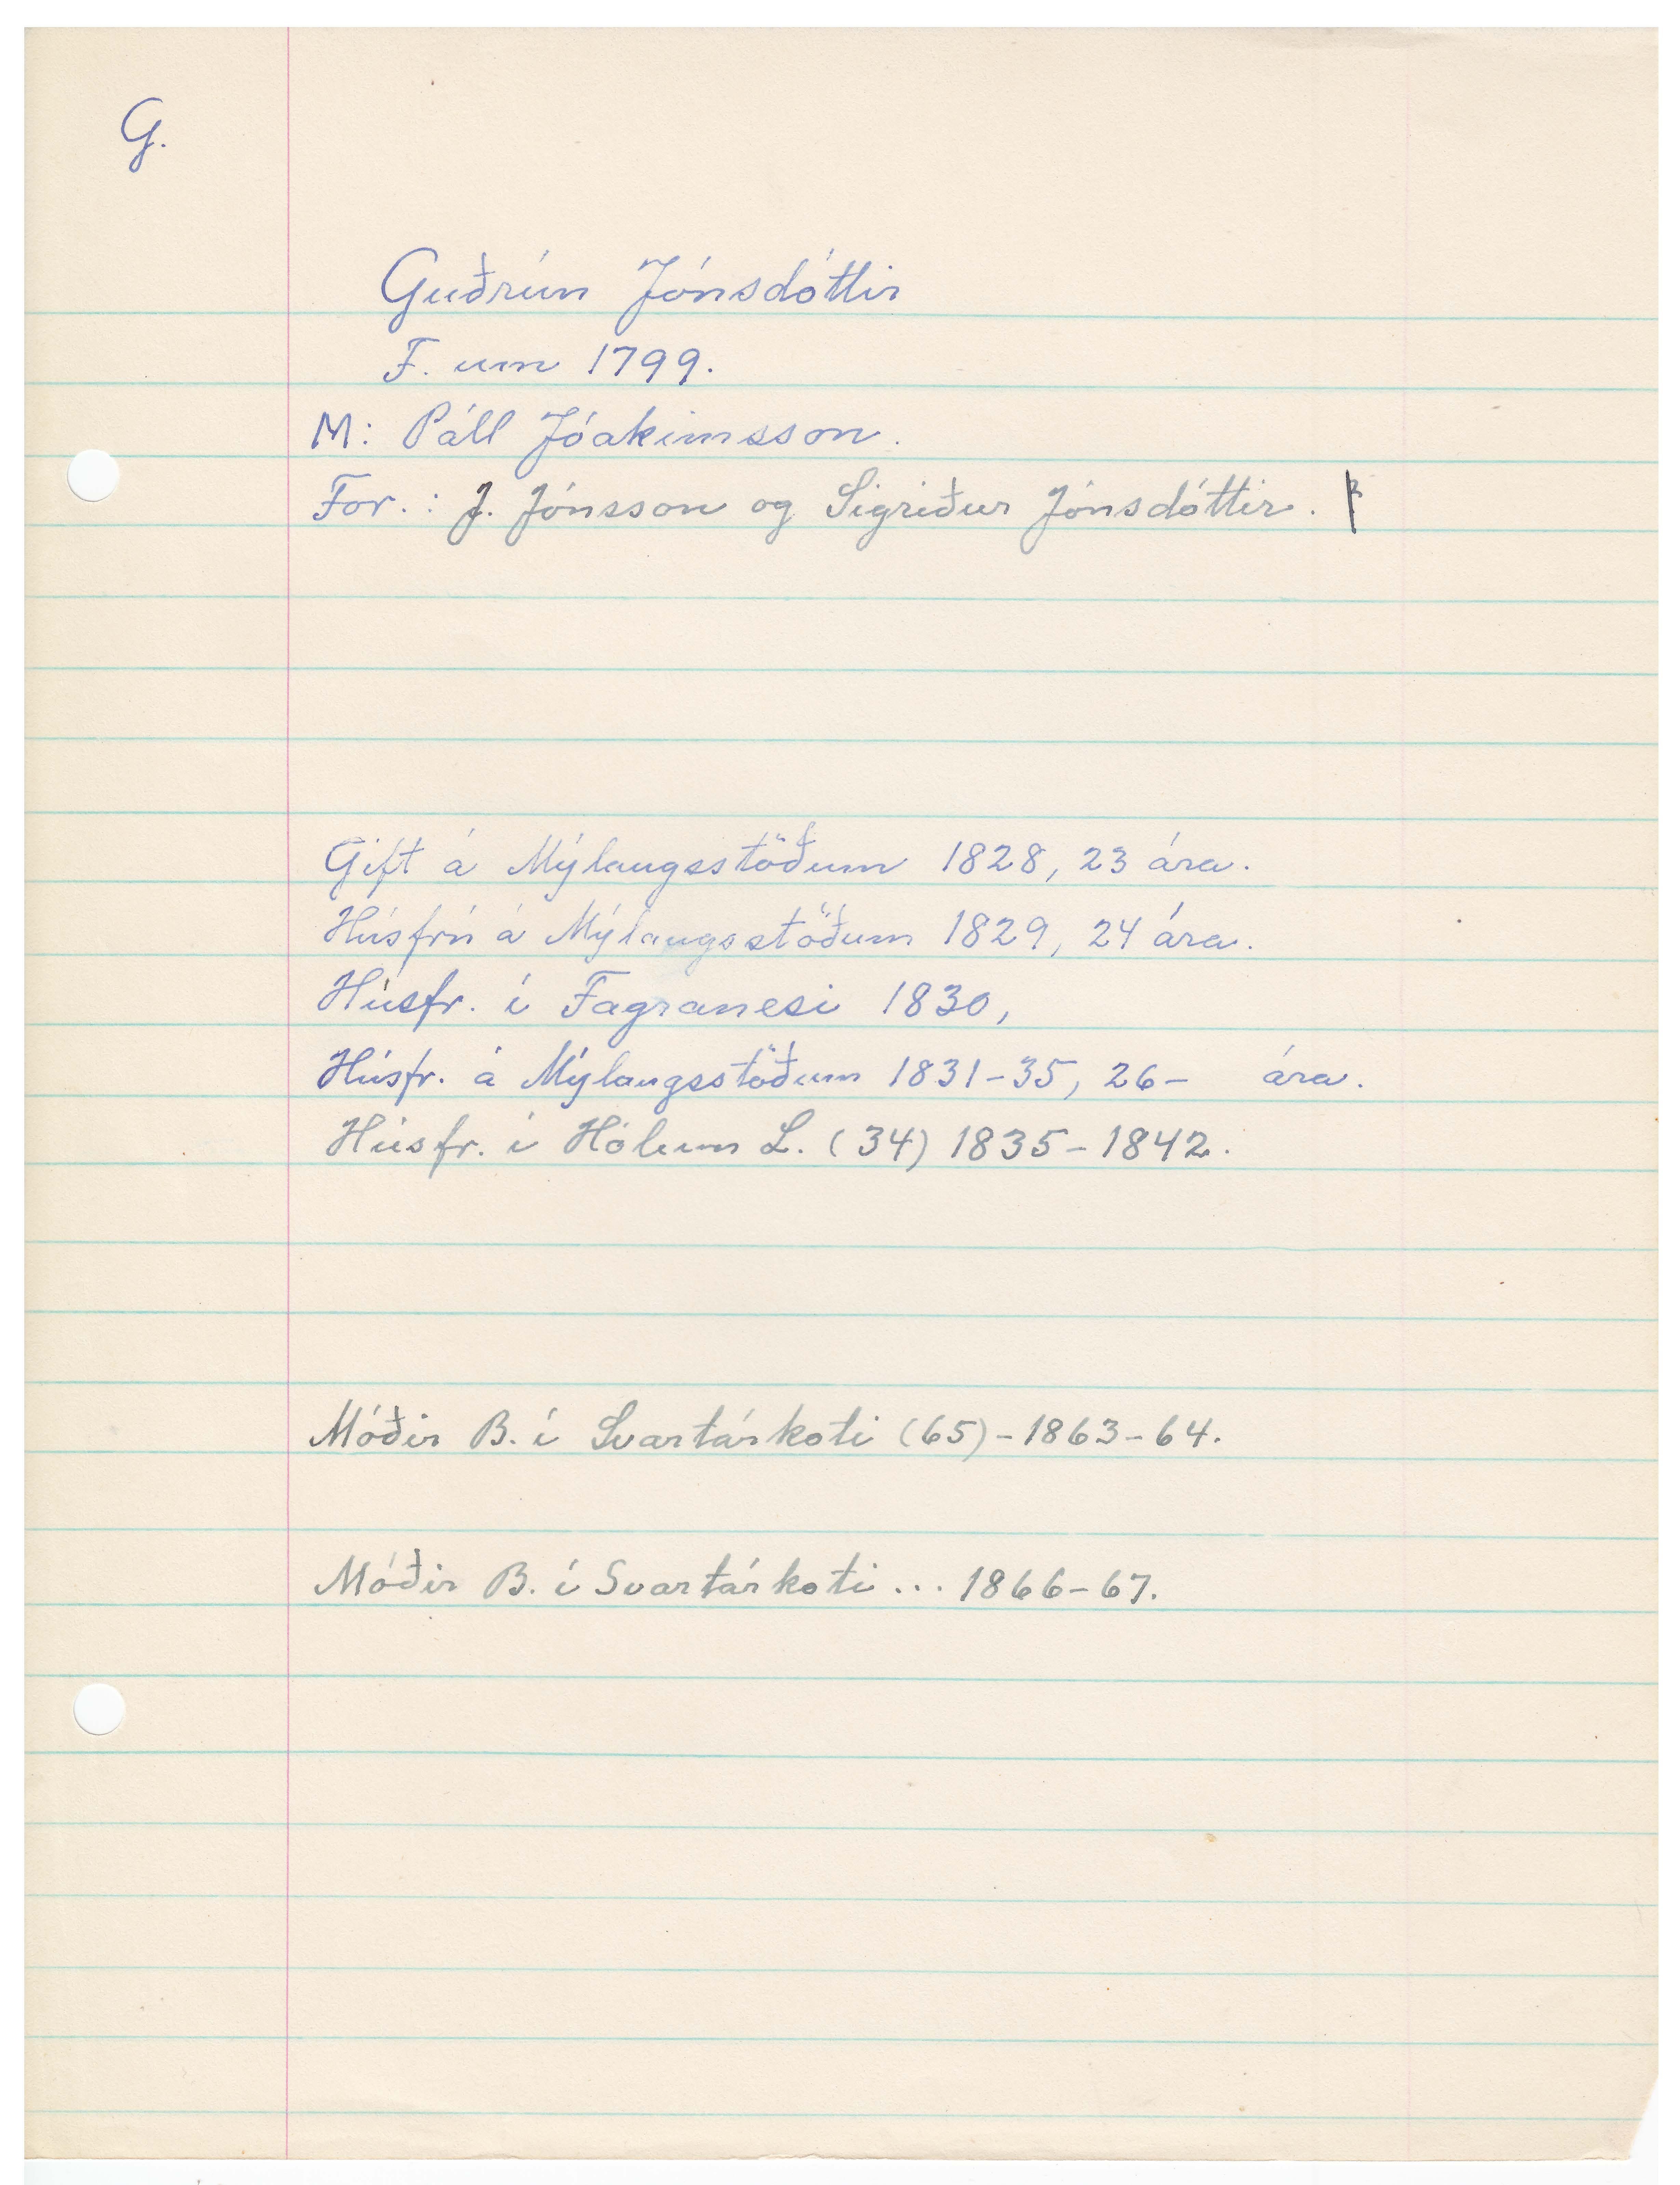 G.
Guðrún Jónsdóttir
F. um 1799.
M: Páll Jóakimsson.
For.: J. Jónsson og Sigríður Jónsdóttir.
Gift á Mýlaugsstöðum 1828, 23 ára.
Húsfrú á Mýlaugsstöðum 1829, 24 ára.
Húsfr. í Fagranesi 1830,
Húsfr. á Mýlaugsstöðum 1831-35, 26- ára.
Húsfr. í Hólum L. (34) 1835-1842.
Móðir B. í Svartárkoti (65)-1863-64.
Móðir B. í Svartárkoti ... 1866-67.